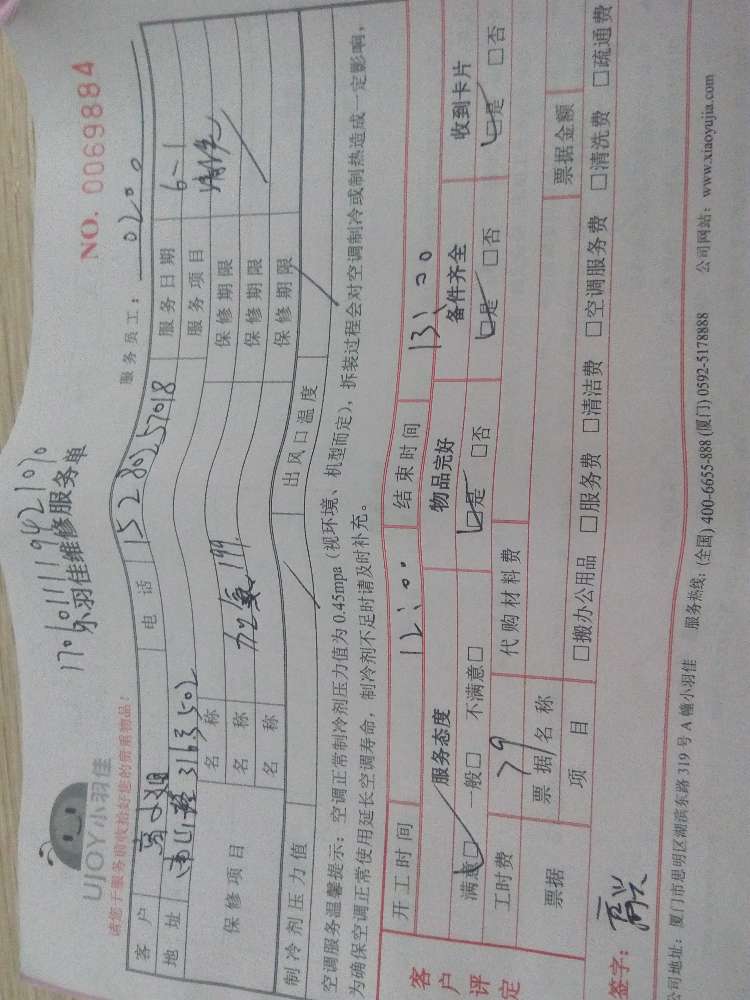 1706011119421070
NO. 0069884
UJOY小羽佳
小羽佳维修服务单
请您于服务前收拾好您的贵重物品!
服务员工: 0200
客户 高小姐 电话 15280257018 服务日期 6-1
地址 3163502 服务项目
保修项目 名称 保修期限
名称 加氟 199 保修期限
名称 保修期限
制冷剂压力值 出风口温度
空调服务温馨提示:空调正常制冷剂压力值为0.45mpa(视环境、机型而定),拆装过程会对空调制冷或制热造成一定影响,
为确保空调正常使用延长空调寿命,制冷剂不足时请及时补充。
客户评定
开工时间 12:00 结束时间 13:00
服务态度 物品完好 备件齐全 收到卡片
满意□ 一般□ 不满意□ □是 □否 □是 □否 □是 □否
工时费 79 代购材料费
票据 票据名称 票据金额
项目 □搬办公用品 □服务费 □清洁费 □空调服务费 □清洗费 □疏通费
签字:
公司地址:厦门市思明区湖滨东路319号A幢小羽佳 服务热线:(全国)400-6655-888(厦门)0592-5178888 公司网站:www.xiaoyujia.com